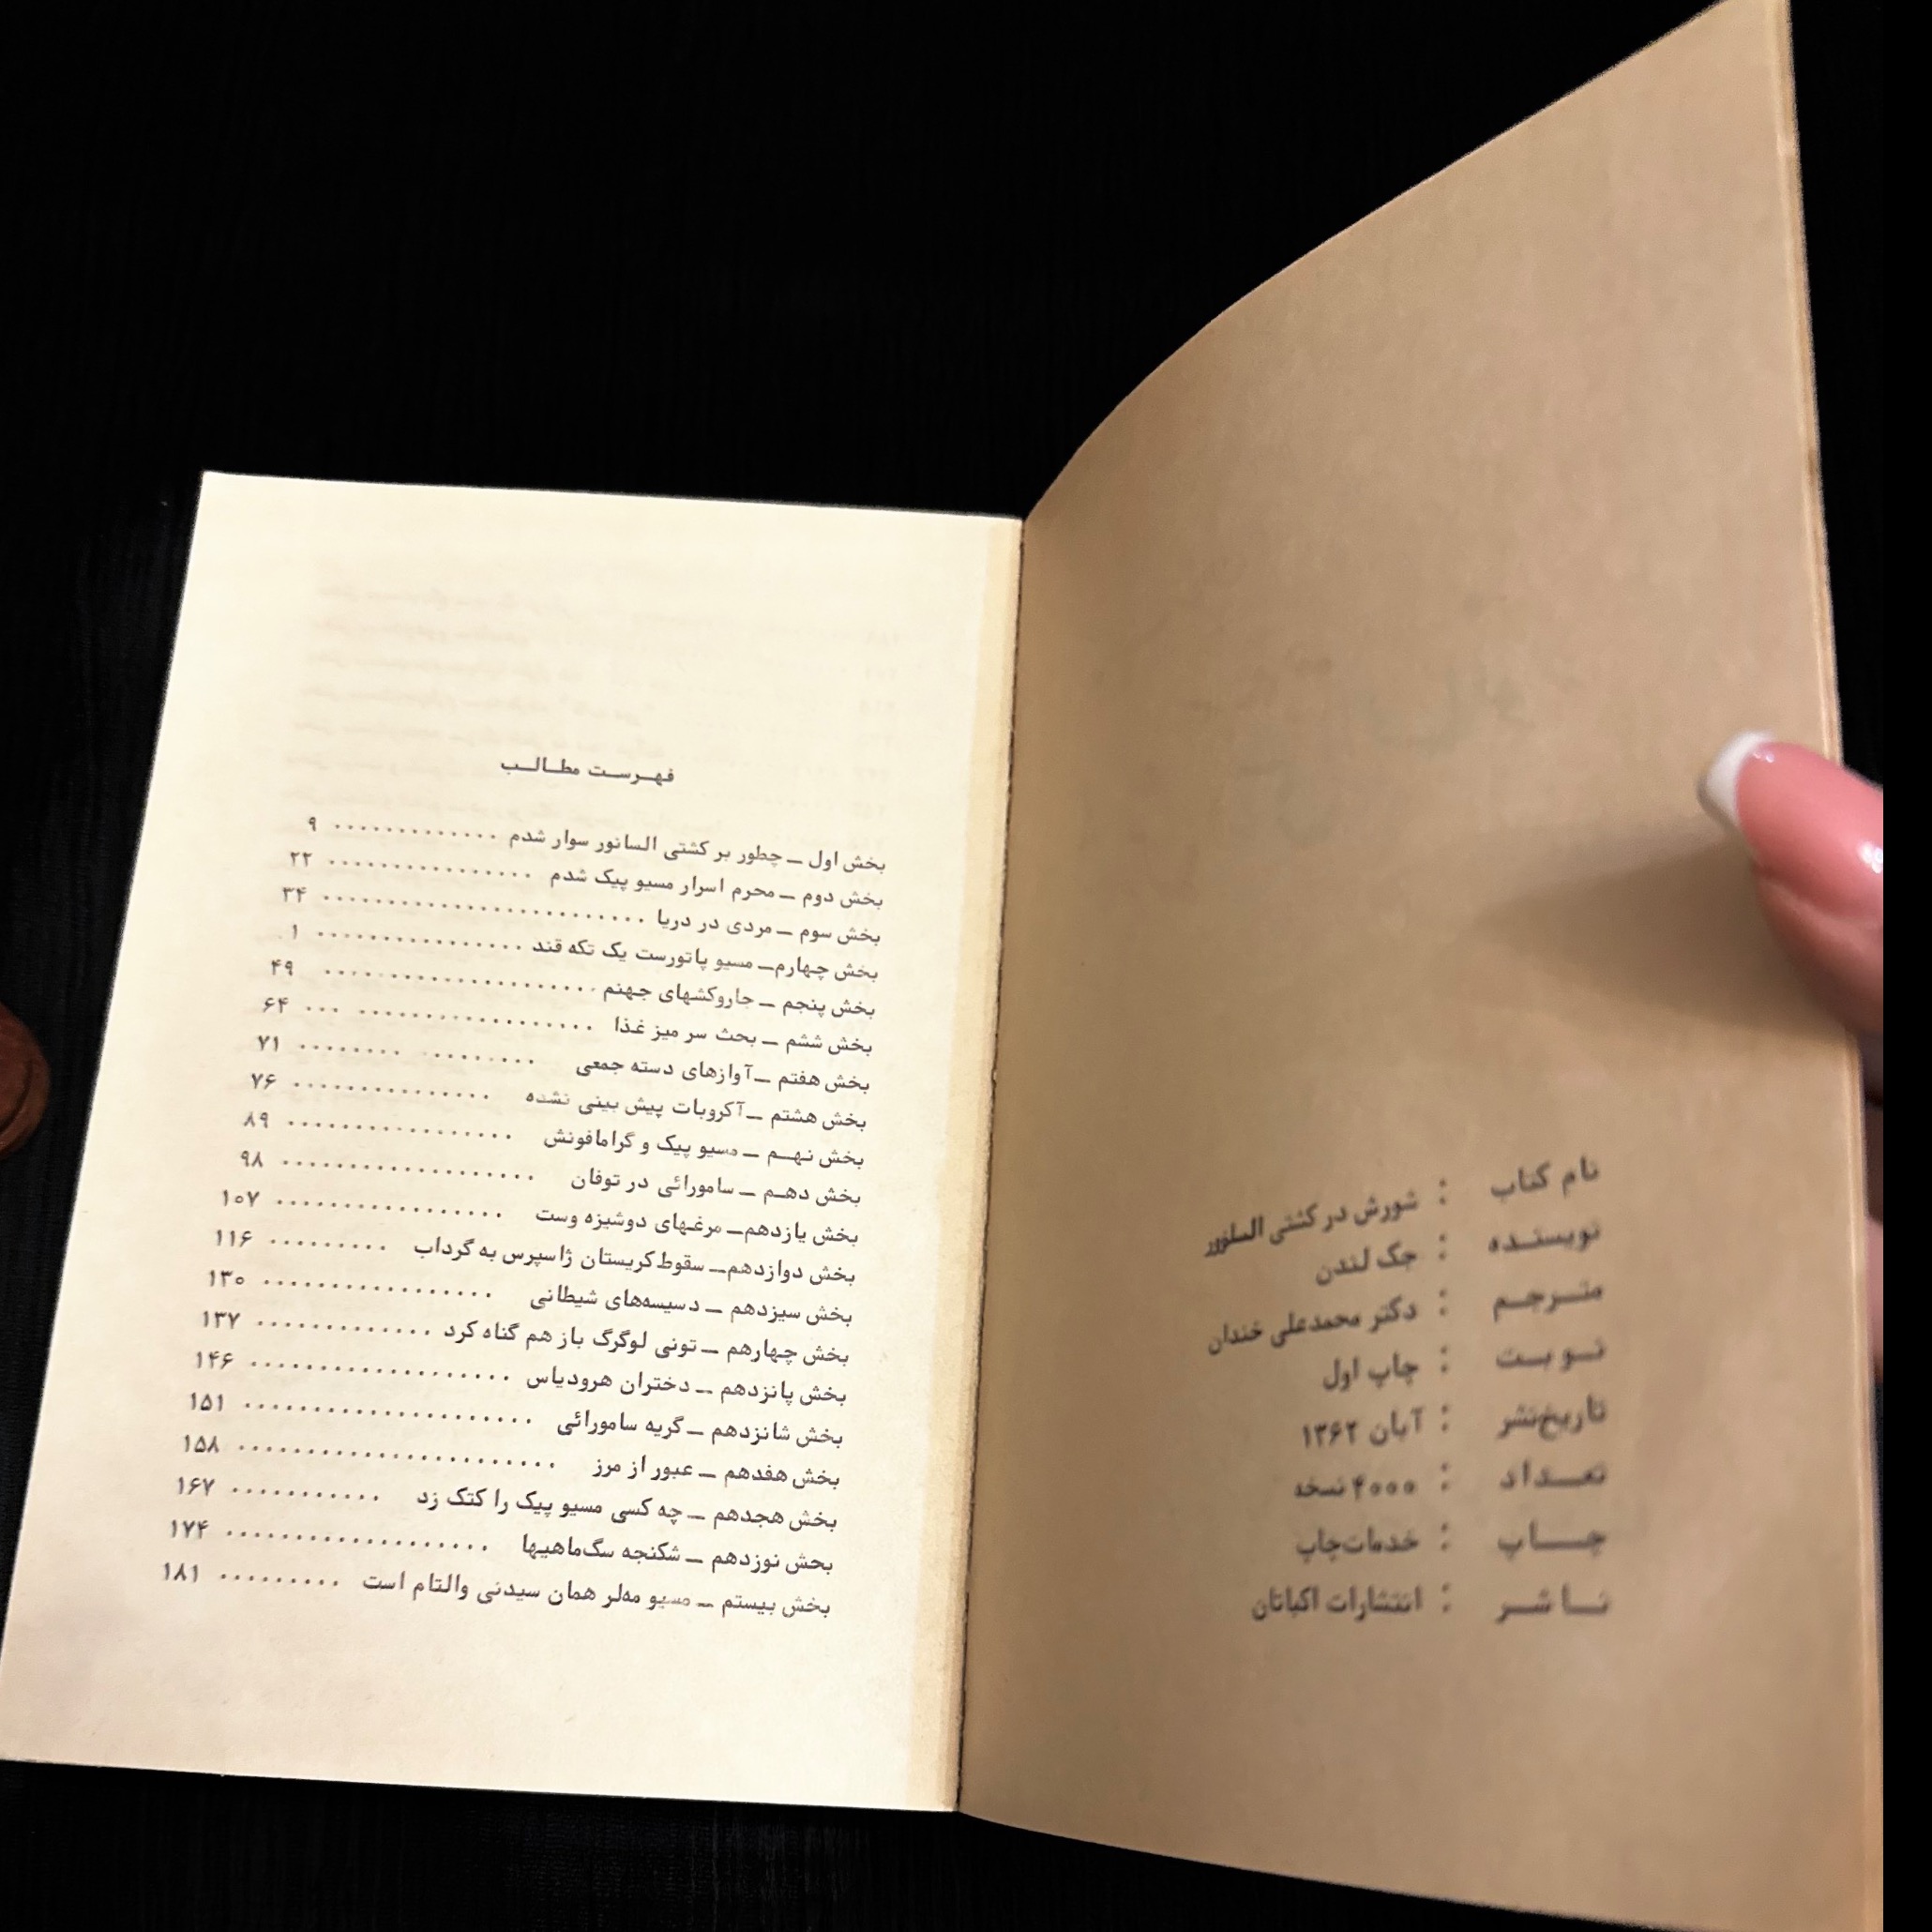 نام کتاب : شورش در کشتی السانور
نویسنده : جک لندن
مترجم : دکتر محمدعلی خندان
نوبت : چاپ اول
تاریخ‌نشر : آبان ۱۳۶۲
تعداد : ۴۰۰۰ نسخه
چاپ : خدمات‌چاپ
ناشر : انتشارات اکباتان
فهرست مطالب
بخش اول ــ چطور بر کشتی السانور سوار شدم ............. ۹
بخش دوم ــ محرم اسرار مسیو پیک شدم ................ ۲۲
بخش سوم ــ مردی در دریا ......................... ۳۴
بخش چهارم ــ مسیو پاتورست یک تکه قند ................ ۱
بخش پنجم ــ جاروکشهای جهنم ..................... ۴۹
بخش ششم ــ بحث سر میز غذا .................. ... ۶۴
بخش هفتم ــ آوازهای دسته جمعی ......... ........ ۷۱
بخش هشتم ــ آکروبات پیش بینی نشده ............... ۷۶
بخش نهم ــ مسیو پیک و گرامافونش ................. ۸۹
بخش دهم ــ سامورائی در توفان ................... ۹۸
بخش یازدهم ــ مرغهای دوشیزه وست ................. ۱۰۷
بخش دوازدهم ــ سقوط کریستان ژاسپرس به گرداب ......... ۱۱۶
بخش سیزدهم ــ دسیسه‌های شیطانی ................. ۱۳۰
بخش چهارهم ــ تونی لوگرگ باز هم گناه کرد ............. ۱۳۷
بخش پانزدهم ــ دختران هرودیاس ................... ۱۴۶
بخش شانزدهم ــ گریه سامورائی ..................... ۱۵۱
بخش هفدهم ــ عبور از مرز ....................... ۱۵۸
بخش هجدهم ــ چه کسی مسیو پیک را کتک زد ........... ۱۶۷
بحش نوزدهم ــ شکنجه سگ‌ماهیها ................... ۱۷۴
بخش بیستم ــ مسیو مه‌لر همان سیدنی والتام است ......... ۱۸۱